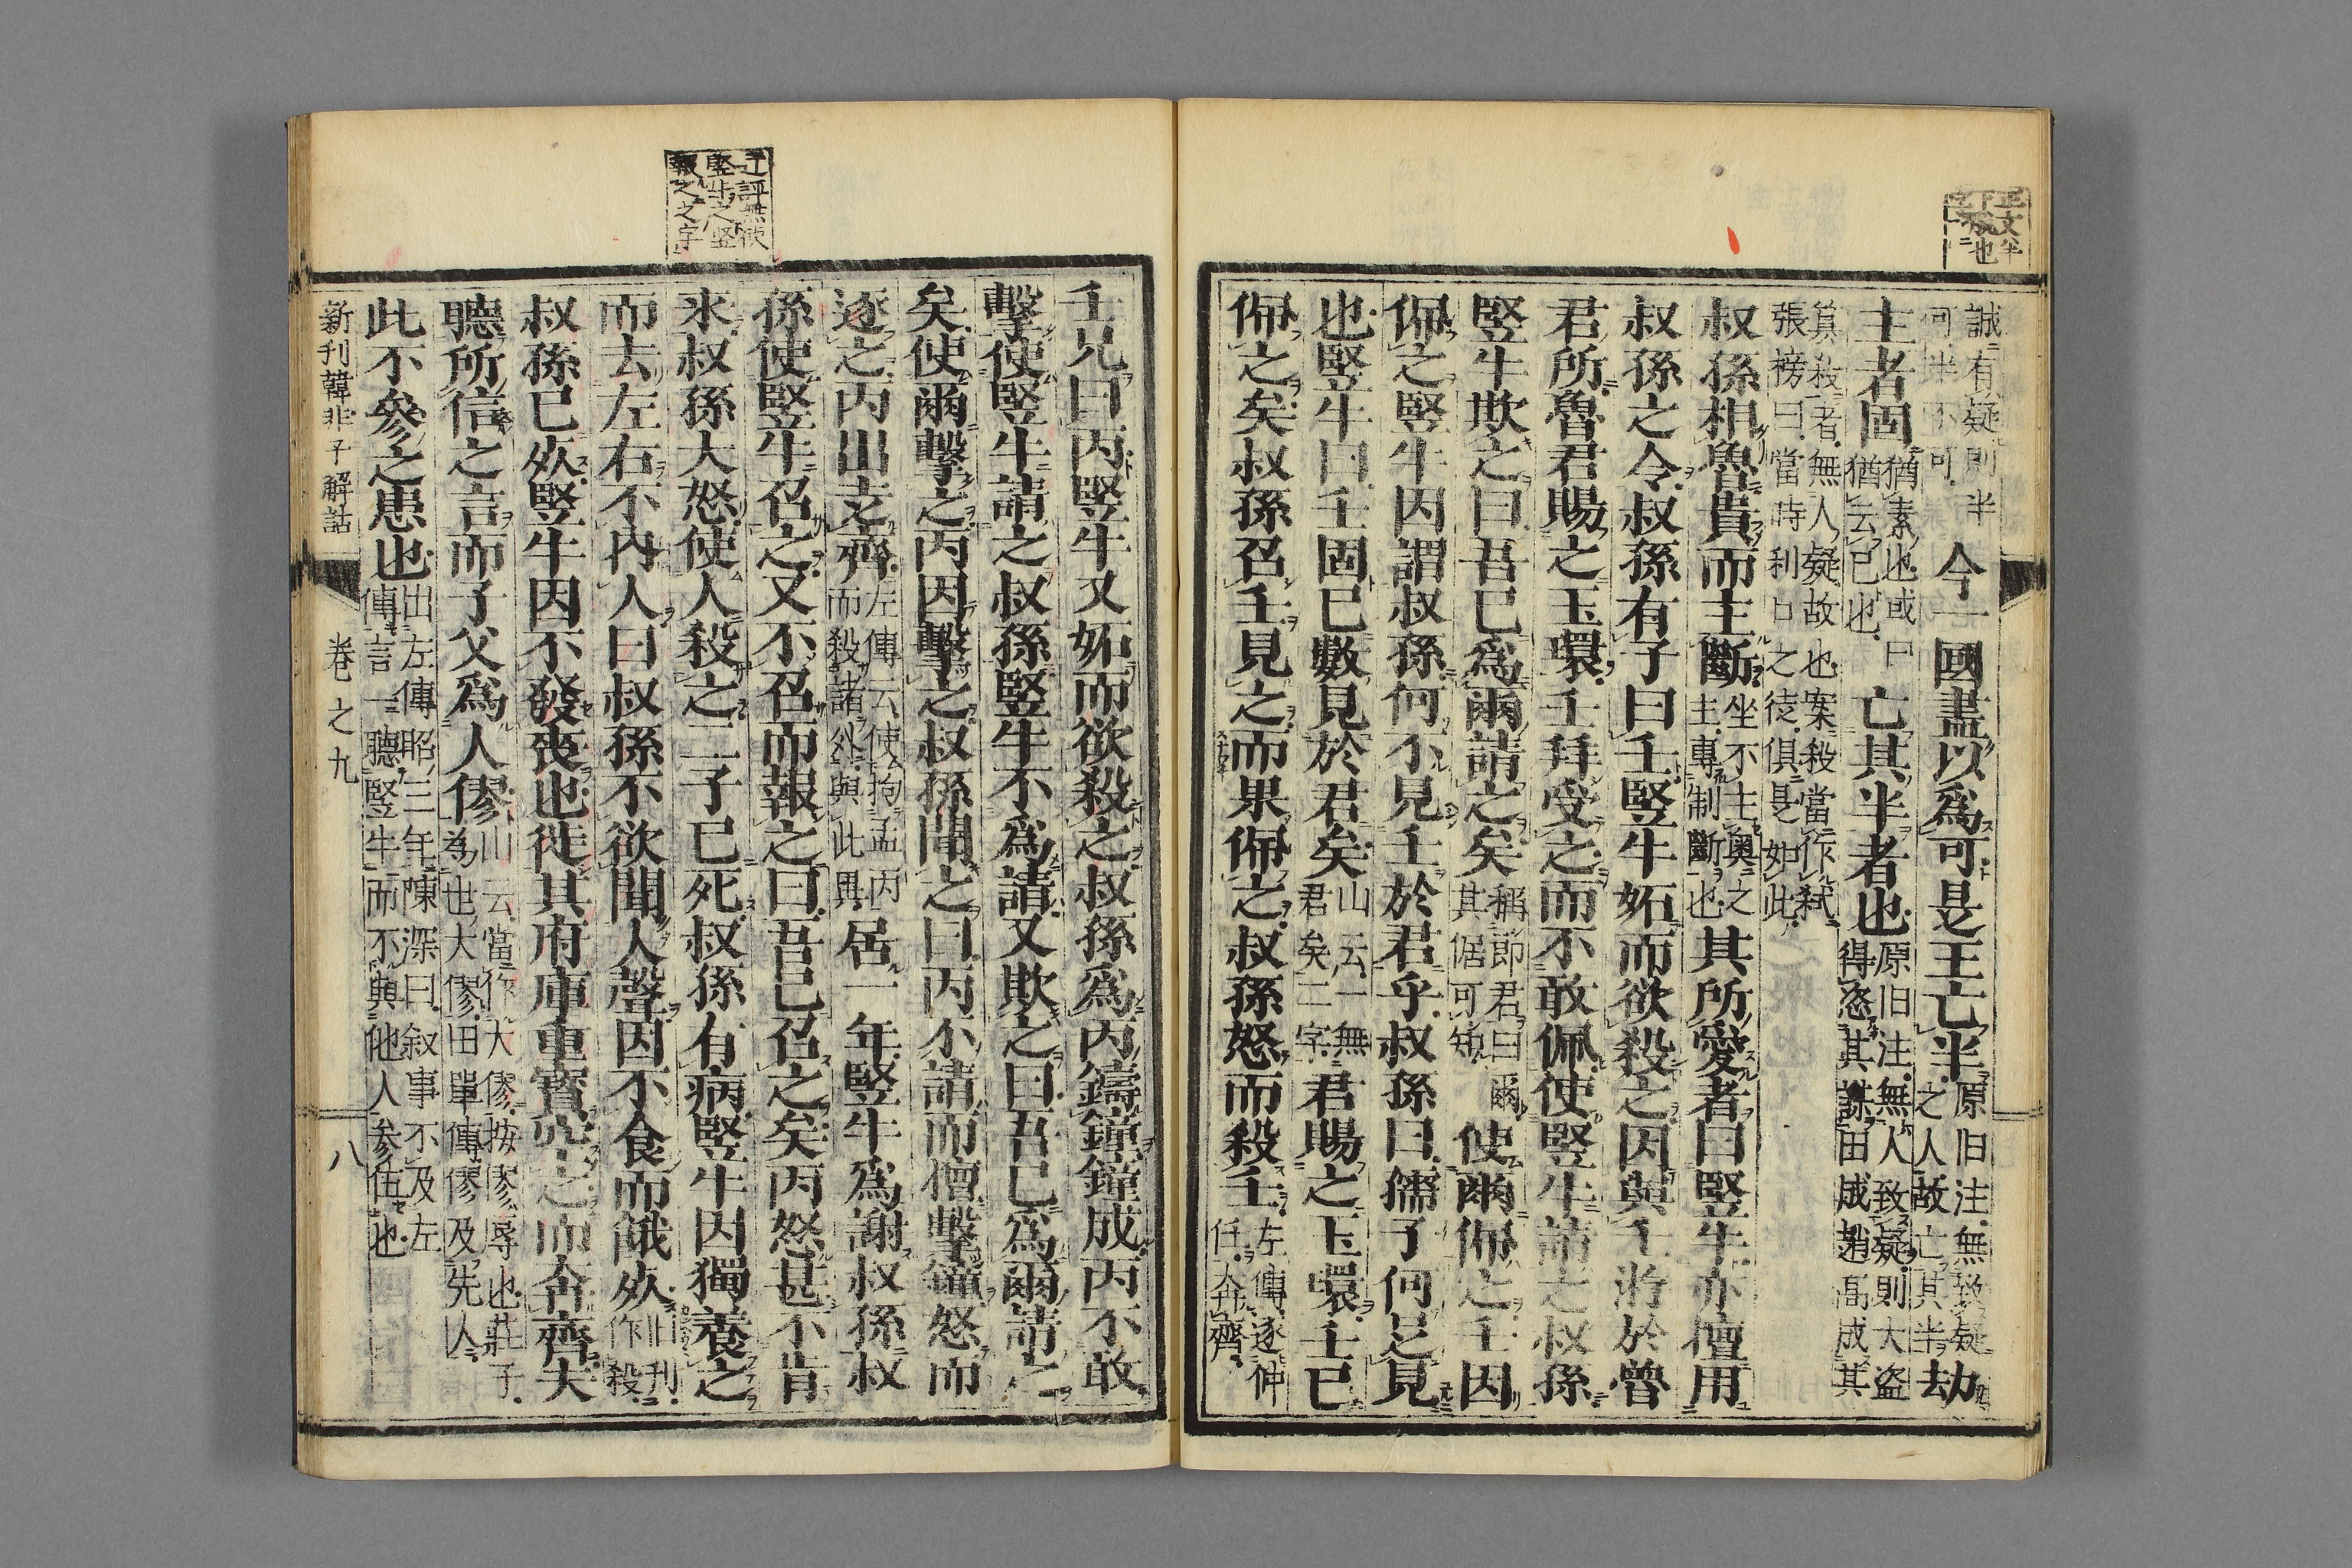 正文半
下脫也
誠有疑則半
可半不可
今一國盡以爲可是王亡半
原旧注無致疑
之人故亡其半
劫
主者固
猶素也或曰
猶云已也
亡其半者也
原旧注無人致疑則大盗
得恣其謀田成趙高成其
簒殺者無人疑故也案殺當作弒
張榜曰當時利口之徒俱是如此
叔孫相魯貴而主斷
坐不主奧之
主專制斷也
其所愛者曰竪牛亦擅用
叔孫之令叔孫有子曰壬竪牛妬而欲殺之因與壬游於魯
君所魯君賜之玉環壬拜受之而不敢佩使竪牛請之叔孫
竪牛欺之曰吾已爲爾請之矣
稱即君曰爾
其倨可知
使爾佩之壬因
佩之竪牛因謂叔孫何不見壬於君乎叔孫曰孺子何足見
也竪牛曰壬固已數見於君矣
山云一無
君矣二字
君賜之玉環壬已
佩之矣叔孫召壬見之而果佩之叔孫怒而殺壬
左傳逐仲
任奔齊
迂評無使
竪牛之竪
報之之字
壬兄曰丙竪牛又妬而欲殺之叔孫爲丙鑄鐘鐘成丙不敢
擊使竪牛請之叔孫竪牛不爲請又欺之曰吾已爲爾請之
矣使爾擊之丙因擊之叔孫聞之曰丙不請而擅擊鐘怒而
逐之丙出走齊
左傳云使拘孟丙
而殺諸外與此異
居一年竪牛爲謝叔孫叔
孫使竪牛召之又不召而報之曰吾已召之矣丙怒甚不肯
來叔孫大怒使人殺之二子已死叔孫有病竪牛因獨養之
而去左右不內人曰叔孫不欲聞人聲因不食而餓死
旧刊
作殺
叔孫已死竪牛因不發喪也徙其府庫重寶空之而奔齊夫
聽所信之言而子父爲人僇
山云當作大僇按僇辱也莊子
為世大僇田單傳僇及先人
此不參之患也
出左傳昭三年陳深曰叙事不及左
傳言一聽竪牛而不與他人参伍也
新刊韓非子解詁
卷之九
八